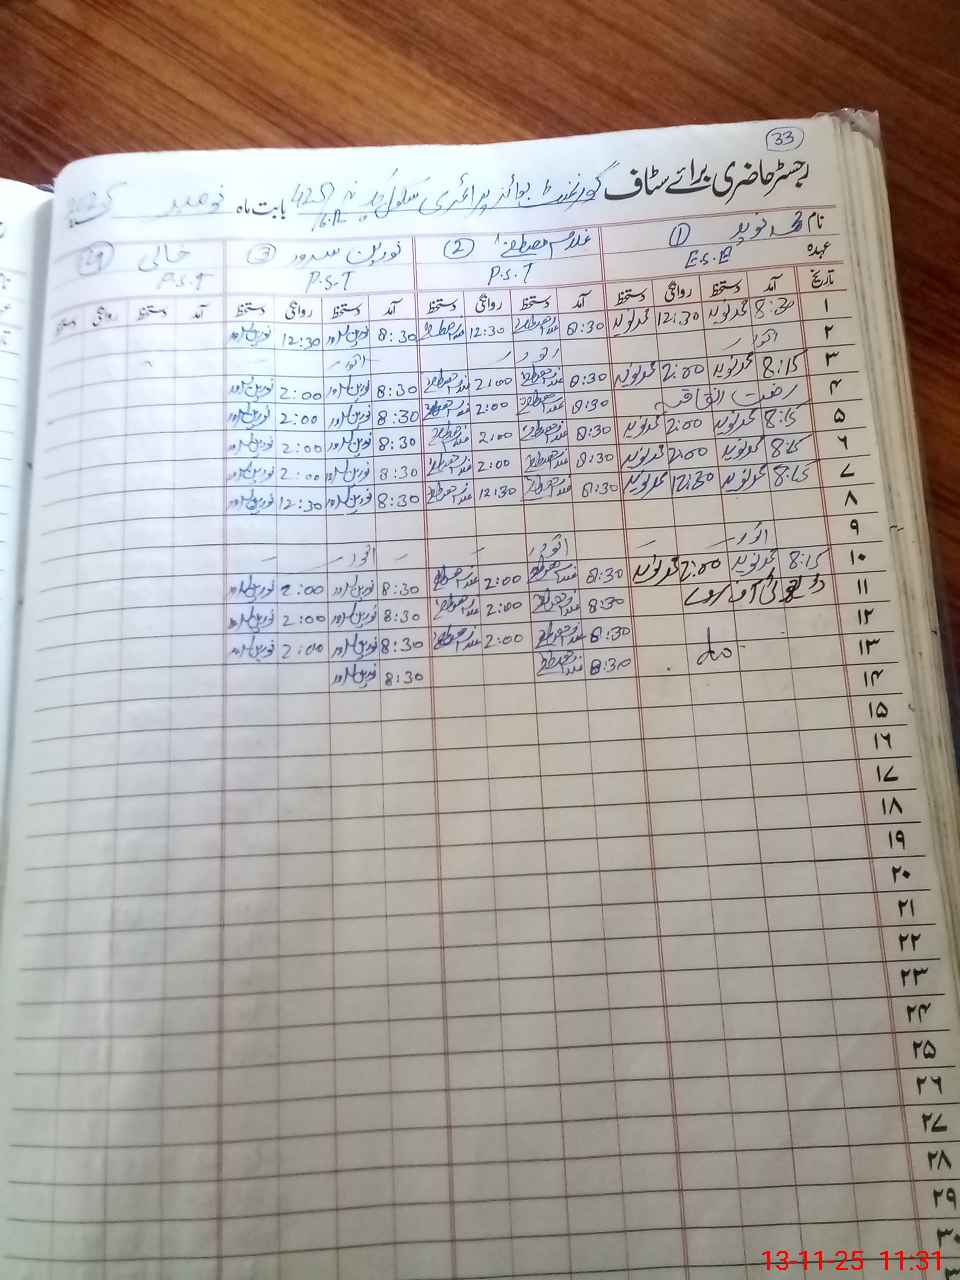 33
رجسٹر حاضری برائے سٹاف گورنمنٹ بوائز پرائمری سکول بابت ماہ نومبر 2025
نام ① محمد نوید ② غلام مصطفےٰ ③ نورین سرور ④ خالی
عہدہ E.S.E P.S.T P.S.T P.S.T
تاریخ آمد دستخط روانگی دستخط آمد دستخط روانگی دستخط آمد دستخط روانگی دستخط آمد دستخط روانگی دستخط
۱ 8:30 محمد نوید 12:30 محمد نوید 8:30 غلام مصطفےٰ 12:30 غلام مصطفےٰ 8:30 نورین سرور 12:30 نورین سرور
۲ اتوار اتوار اتوار
۳ 8:15 محمد نوید 2:00 محمد نوید 8:30 غلام مصطفےٰ 2:00 غلام مصطفےٰ 8:30 نورین سرور 2:00 نورین سرور
۴ رخصت اتفاقیہ 8:30 غلام مصطفےٰ 2:00 غلام مصطفےٰ 8:30 نورین سرور 2:00 نورین سرور
۵ 8:15 محمد نوید 2:00 محمد نوید 8:30 غلام مصطفےٰ 2:00 غلام مصطفےٰ 8:30 نورین سرور 2:00 نورین سرور
۶ 8:15 محمد نوید 2:00 محمد نوید 8:30 غلام مصطفےٰ 2:00 غلام مصطفےٰ 8:30 نورین سرور 2:00 نورین سرور
۷ 8:15 محمد نوید 12:30 محمد نوید 8:30 غلام مصطفےٰ 12:30 غلام مصطفےٰ 8:30 نورین سرور 12:30 نورین سرور
۸
۹ اتوار اتوار اتوار
۱۰ 8:15 محمد نوید 2:00 محمد نوید 8:30 غلام مصطفےٰ 2:00 غلام مصطفےٰ 8:30 نورین سرور 2:00 نورین سرور
۱۱ 8:30 غلام مصطفےٰ 2:00 غلام مصطفےٰ 8:30 نورین سرور 2:00 نورین سرور
۱۲ 8:30 غلام مصطفےٰ 2:00 غلام مصطفےٰ 8:30 نورین سرور 2:00 نورین سرور
۱۳ 8:30 غلام مصطفےٰ 8:30 نورین سرور
۱۴
۱۵
۱۶
۱۷
۱۸
۱۹
۲۰
۲۱
۲۲
۲۳
۲۴
۲۵
۲۶
۲۷
۲۸
۲۹
۳۰
13-11-25 11:31